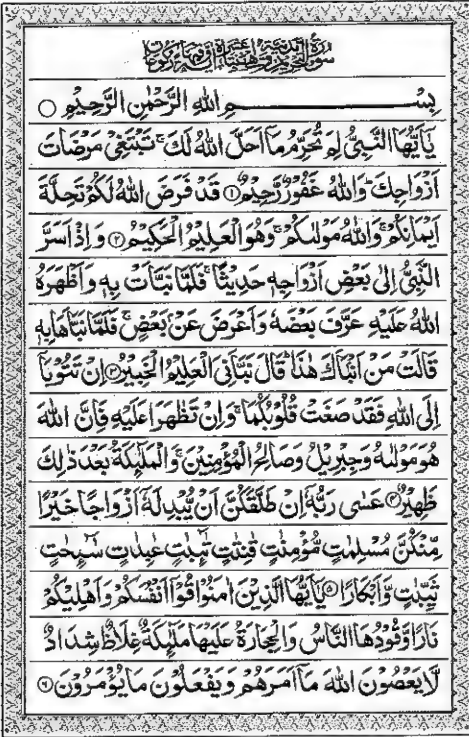 بِسْمِ اللهِ الرَّحْمٰنِ الرَّحِيْمِ ○
يٰۤاَيُّهَا النَّبِىُّ لِمَ تُحَرِّمُ مَاۤ اَحَلَّ اللهُ لَكَ ۚ تَبْتَغِىْ مَرْضَاتَ
اَزْوَاجِكَ ؕ وَاللهُ غَفُوْرٌ رَّحِيْمٌ ① قَدْ فَرَضَ اللهُ لَكُمْ تَحِلَّةَ
اَيْمَانِكُمْ ۚ وَاللهُ مَوْلٰىكُمْ ۚ وَهُوَ الْعَلِيْمُ الْحَكِيْمُ ② وَاِذْ اَسَرَّ
النَّبِىُّ اِلٰى بَعْضِ اَزْوَاجِهٖ حَدِيْثًا ۚ فَلَمَّا نَبَّاَتْ بِهٖ وَاَظْهَرَهُ
اللهُ عَلَيْهِ عَرَّفَ بَعْضَهٗ وَاَعْرَضَ عَنْۢ بَعْضٍ ۚ فَلَمَّا نَبَّاَهَا بِهٖ
قَالَتْ مَنْ اَنْۢبَاَكَ هٰذَا ؕ قَالَ نَبَّاَنِىَ الْعَلِيْمُ الْخَبِيْرُ ③ اِنْ تَتُوْبَاۤ
اِلَى اللهِ فَقَدْ صَغَتْ قُلُوْبُكُمَا ۚ وَاِنْ تَظٰهَرَا عَلَيْهِ فَاِنَّ اللهَ
هُوَ مَوْلٰىهُ وَجِبْرِيْلُ وَصَالِحُ الْمُؤْمِنِيْنَ ۚ وَالْمَلٰٓئِكَةُ بَعْدَ ذٰلِكَ
ظَهِيْرٌ ④ عَسٰى رَبُّهٗۤ اِنْ طَلَّقَكُنَّ اَنْ يُّبْدِلَهٗۤ اَزْوَاجًا خَيْرًا
مِّنْكُنَّ مُسْلِمٰتٍ مُّؤْمِنٰتٍ قٰنِتٰتٍ تٰٓئِبٰتٍ عٰبِدٰتٍ سٰٓئِحٰتٍ
ثَيِّبٰتٍ وَّاَبْكَارًا ⑤ يٰۤاَيُّهَا الَّذِيْنَ اٰمَنُوْا قُوْۤا اَنْفُسَكُمْ وَاَهْلِيْكُمْ
نَارًا وَّقُوْدُهَا النَّاسُ وَالْحِجَارَةُ عَلَيْهَا مَلٰٓئِكَةٌ غِلَاظٌ شِدَادٌ
لَّا يَعْصُوْنَ اللهَ مَاۤ اَمَرَهُمْ وَيَفْعَلُوْنَ مَا يُؤْمَرُوْنَ ⑥